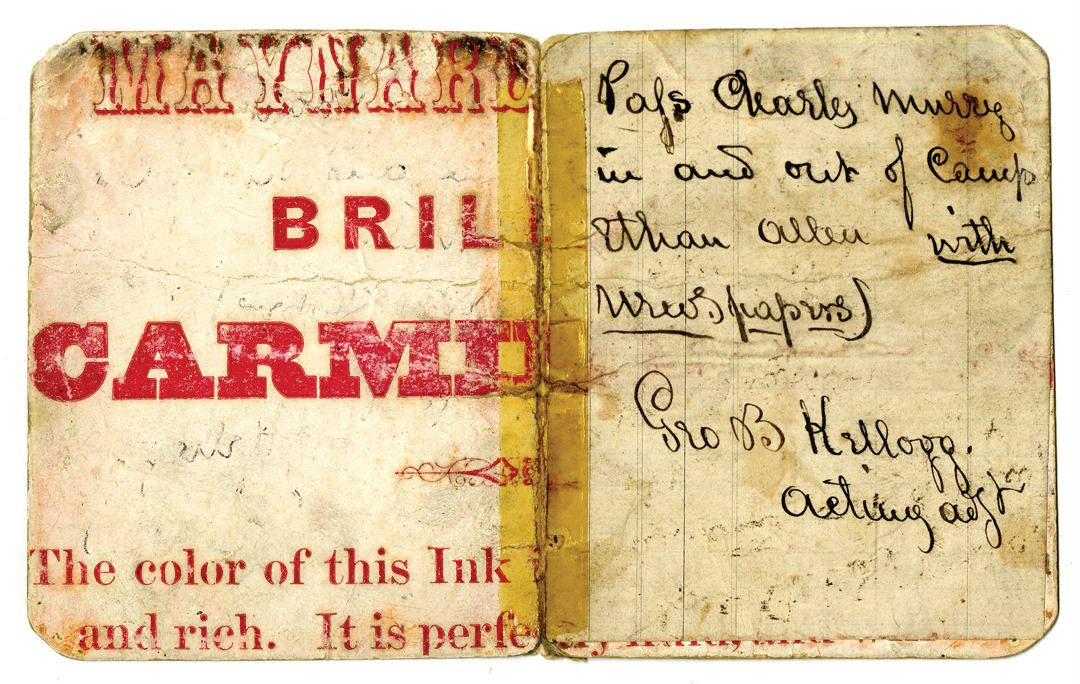 MAYNARD
BRIL
CARMI
The color of this Ink i
and rich. It is perfe
Pass Charles Murry
in and out of Camp
Ethan Allen with
Newspapers)
Geo B Kellogg.
Acting adjt